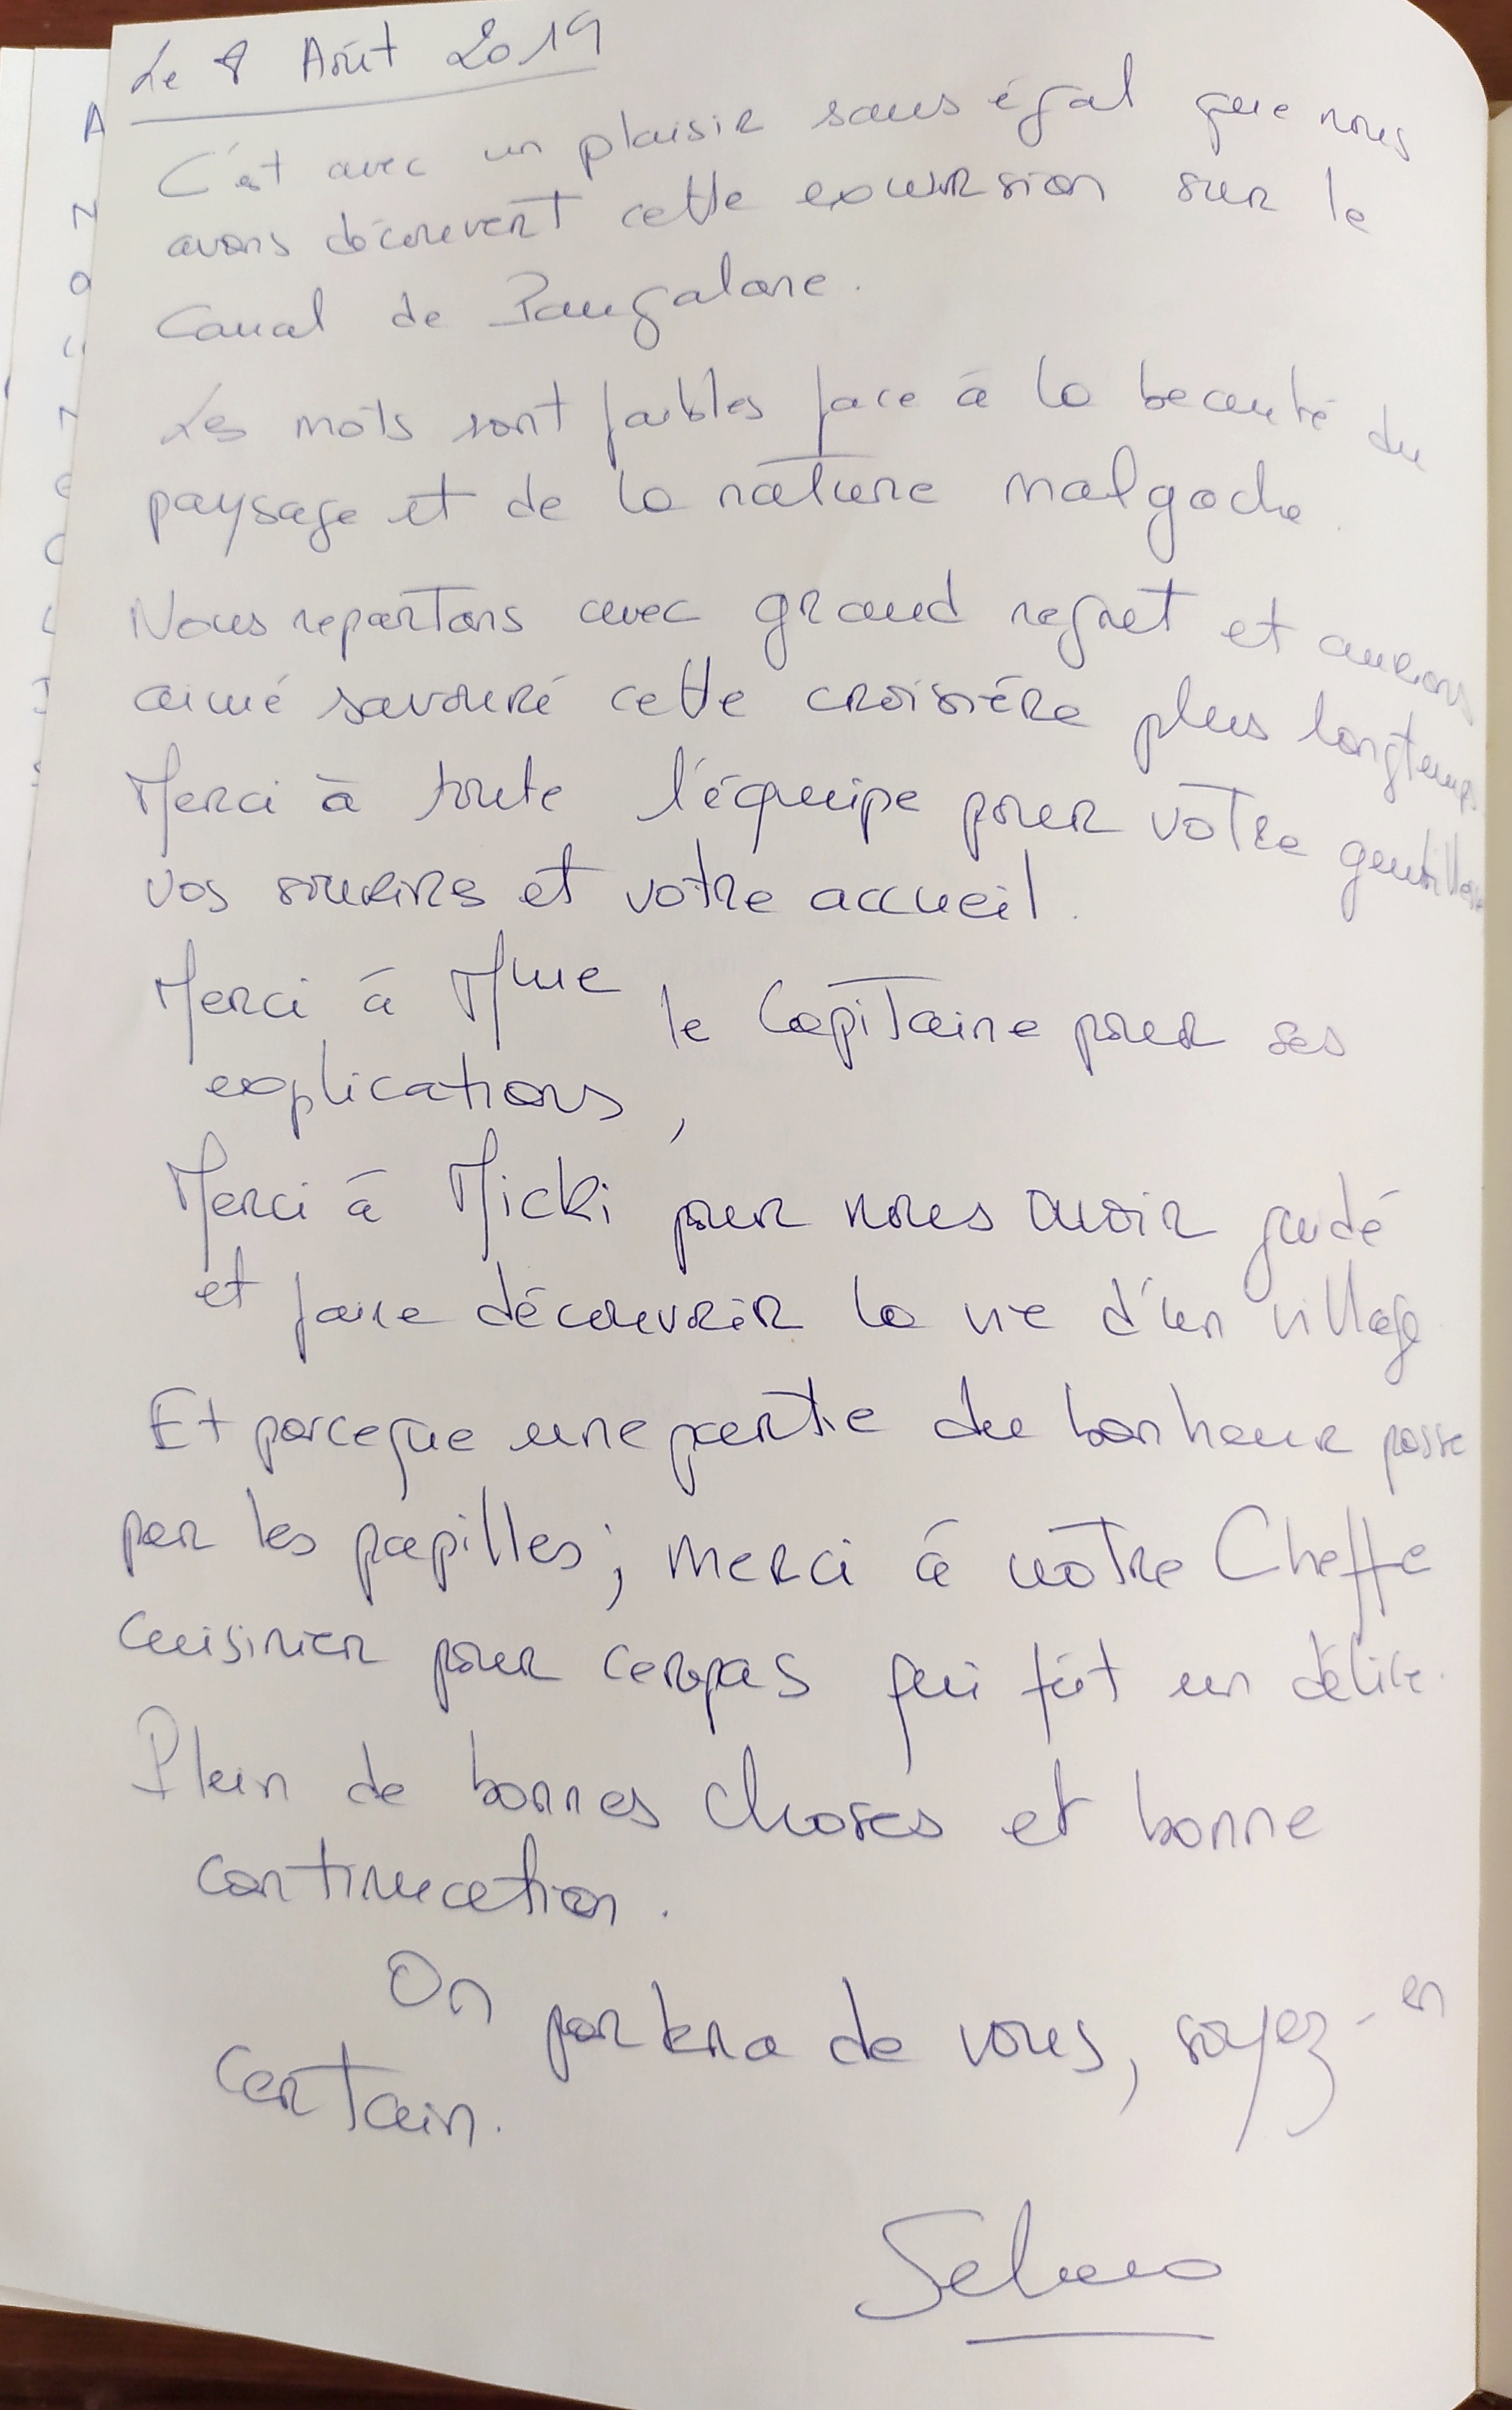 Le 8 Août 2019
C'est avec un plaisir sans égal que nous
avons découvert cette excursion sur le
Canal de Pangalane.
Les mots sont faibles face à la beauté du
paysage et de la nature malgache.
Nous repartons avec grand regret et aurions
aimé savouré cette croisière plus longtemps
Merci à toute l'équipe pour votre gentillesse
vos sourires et votre accueil.
Merci à Mme le Capitaine pour ses
explications,
Merci à Micki pour nous avoir guidé
et faire découvrir la vie d'un village
Et parceque une partie du bonheur passe
par les papilles; merci à notre Cheffe
cuisinier pour ce repas qui fût un délice.
Plein de bonnes choses et bonne
continuation.
On parlera de vous, soyez-en
certain.